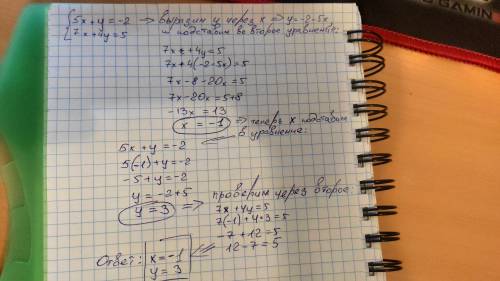 {5x+y=-2 → выразим y через x ⇒ y=-2-5x
{7x+4y=5 подставим во второе уравнение:
7x+4y=5
7x+4(-2-5x)=5
7x-8-20x=5
7x-20x=5+8
-13x=13
x=-1 ⇒ теперь x подставим
в уравнение:
5x+y=-2
5(-1)+y=-2
-5+y=-2
y=-2+5
y=3 ⇒ проверим через второе:
7x+4y=5
7(-1)+4·3=5
-7+12=5
12-7=5
Ответ: x=-1
y=3
GAMING